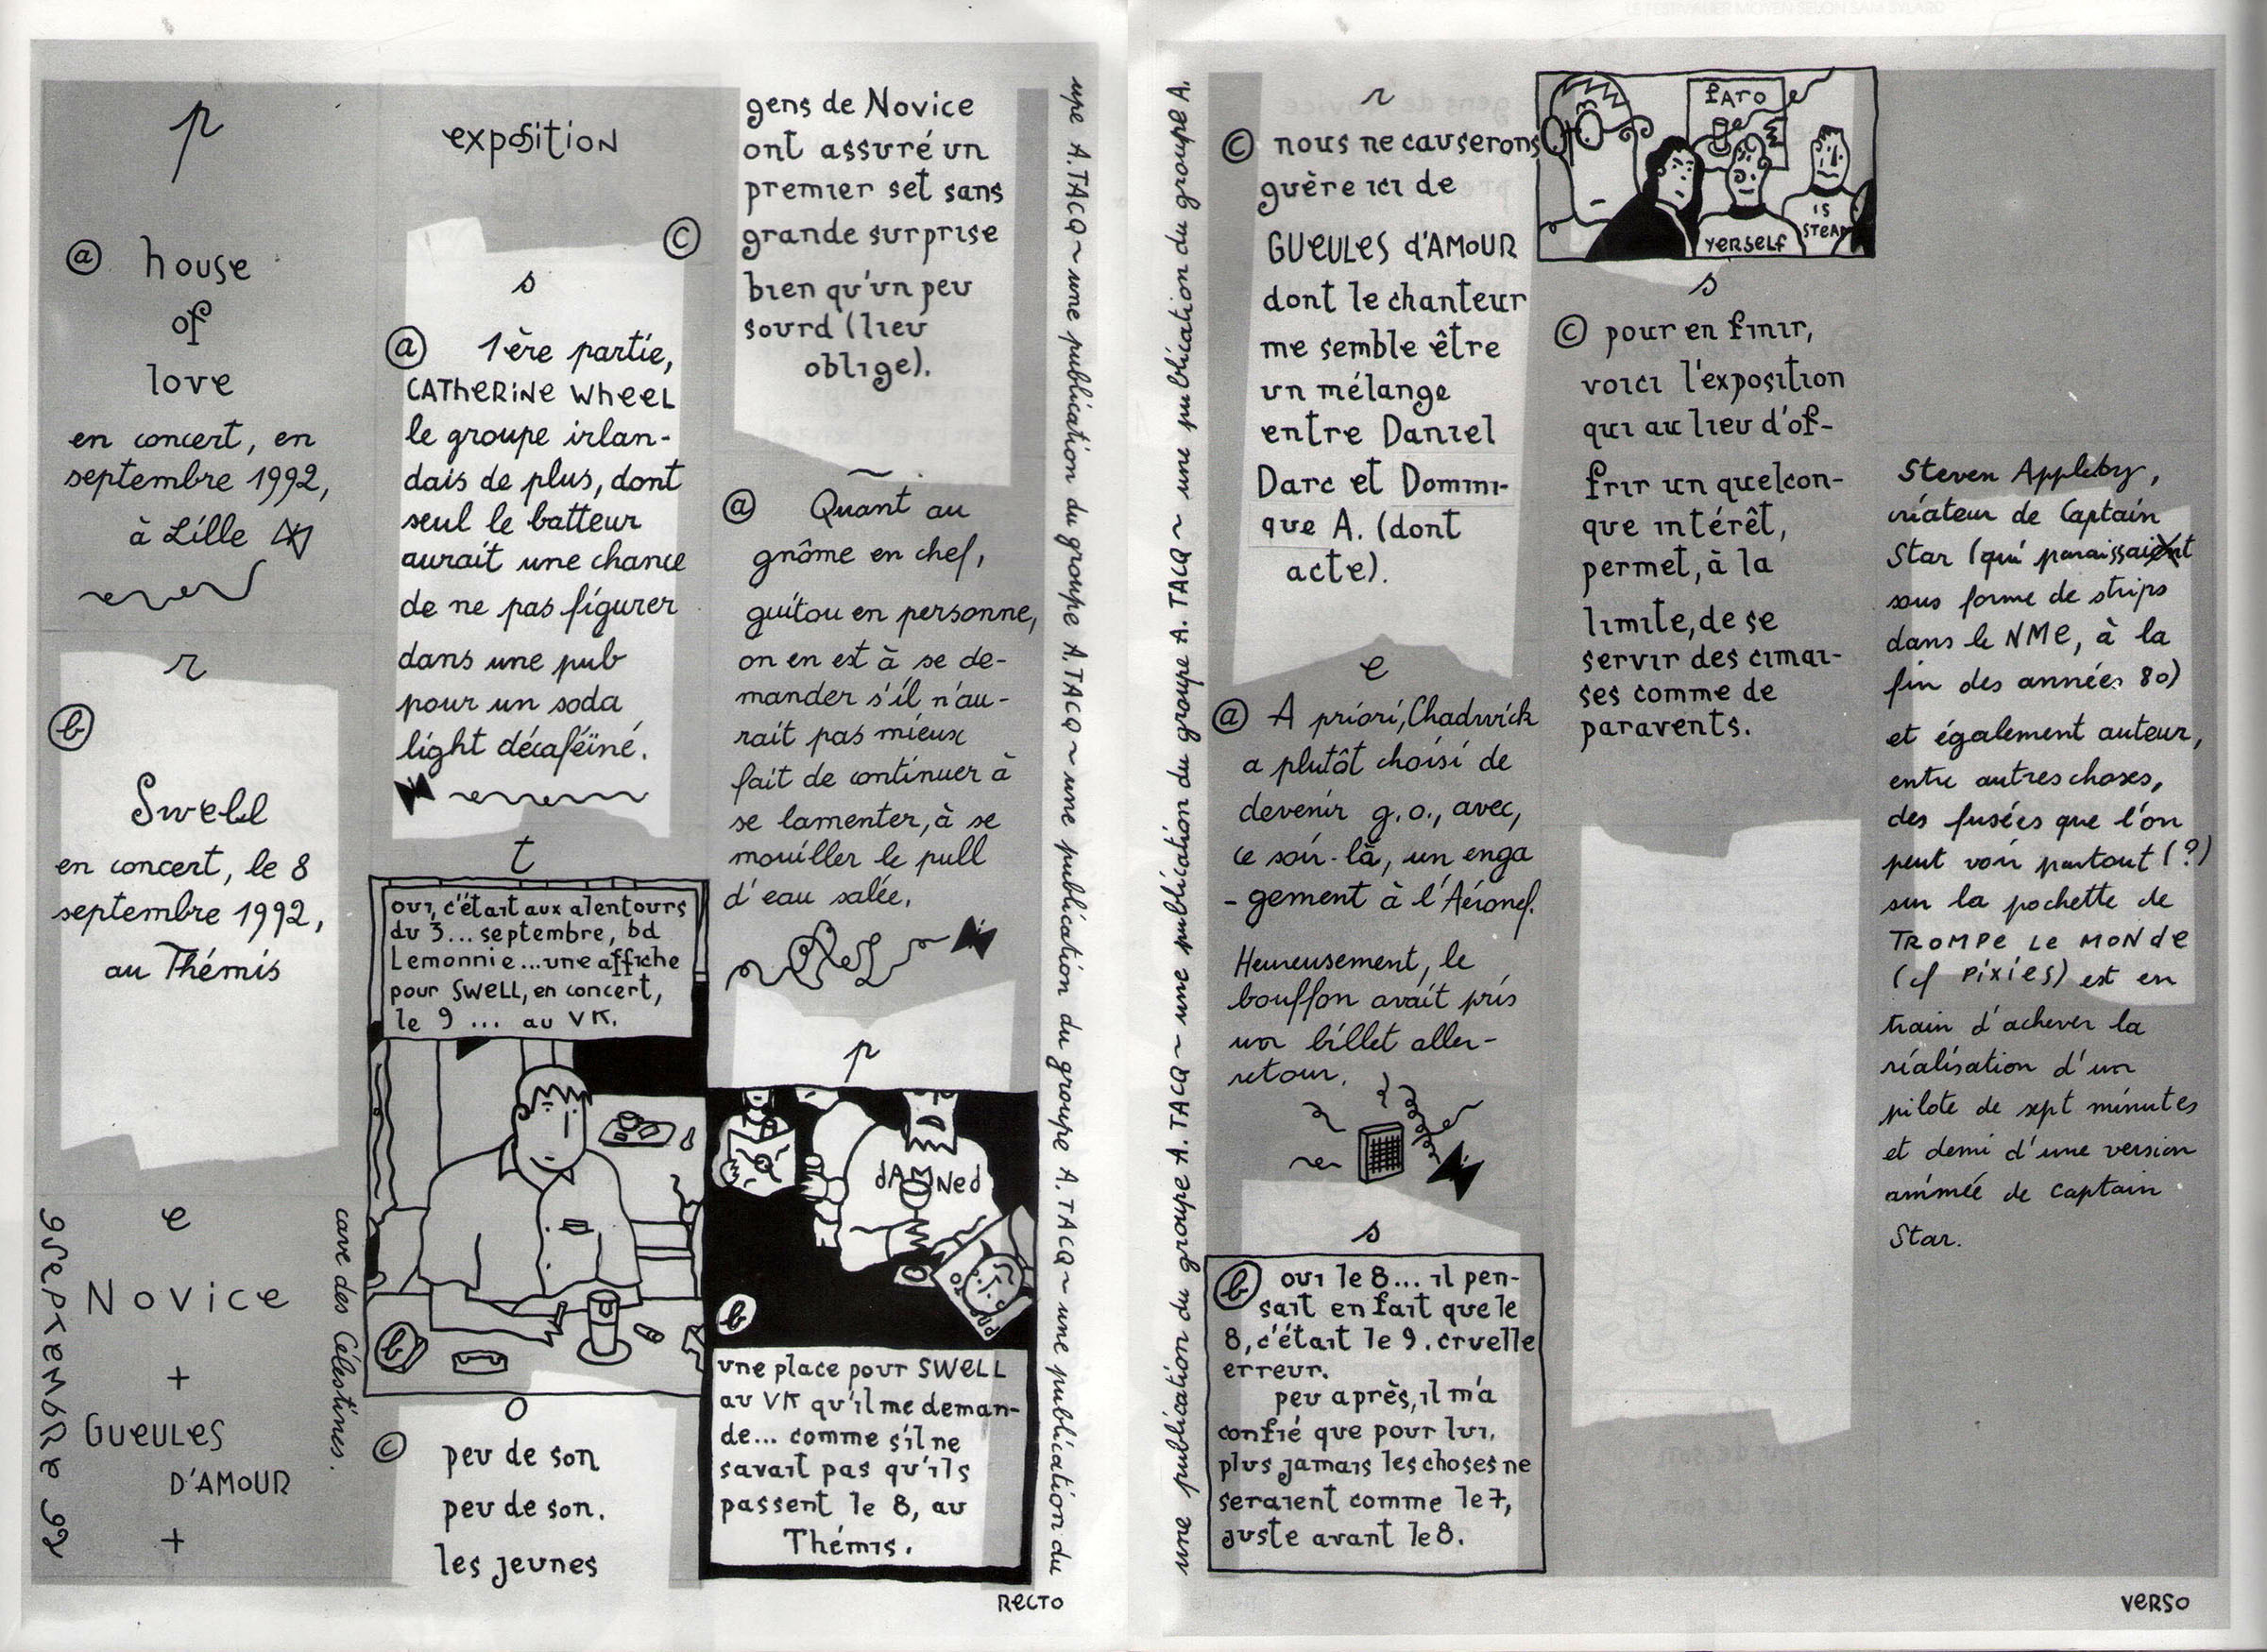 p
@ house
of
love
en concert, en
septembre 1992,
à Lille
r
ⓑ
Swell
en concert, le 8
septembre 1992,
au Thémis
e
Novice
+
GUEULES
D'AMOUR
+
cave des Célestines.
exposition
s
ⓐ 1ère partie,
CATHERINE WHEEL
le groupe irlan-
dais de plus, dont
seul le batteur
aurait une chance
de ne pas figurer
dans une pub
pour un soda
light décaféiné.
t
oui, c'était aux alentours
du 3... septembre, bd
Lemonnie...une affiche
pour SWELL, en concert,
le 9 ... au VK.
ⓑ
o
© peu de son
peu de son.
les jeunes
©
gens de Novice
ont assuré un
premier set sans
grande surprise
bien qu'un peu
sourd (lieu
oblige).
ⓐ Quant au
gnôme en chef,
guitou en personne,
on en est à se de-
mander s'il n'au-
rait pas mieux
fait de continuer à
se lamenter, à se
mouiller le pull
d'eau salée.
p
dAMNed
ⓑ
une place pour SWELL
au VK qu'il me deman-
de... comme s'il ne
savait pas qu'ils
passent le 8, au
Thémis.
upe A.TACQ ~ une publication du groupe A.TACQ ~ une publication du groupe A.TACQ ~ une publication du
RECTO
une publication du groupe A.TACQ ~ une publication du groupe A.TACQ ~ une publication du groupe A.
r
© nous ne causerons
guère ici de
GUEULES d'AMOUR
dont le chanteur
me semble être
un mélange
entre Daniel
Darc et Domini-
que A. (dont
acte).
e
ⓐ A priori, Chadwick
a plutôt choisi de
devenir g.o., avec,
ce soir-là, un enga
-gement à l'Aéronef.
Heureusement, le
bouffon avait pris
un billet aller-
retour.
s
ⓑ oui le 8... il pen-
sait en fait que le
8, c'était le 9. cruelle
erreur.
peu après, il m'a
confié que pour lui,
plus jamais les choses ne
seraient comme le 7,
juste avant le 8.
fATO
YERSELF
IS
STEAM
s
© pour en finir,
voici l'exposition
qui au lieu d'of-
frir un quelcon-
que intérêt,
permet, à la
limite, de se
servir des cimai-
ses comme de
paravents.
Steven Appleby,
créateur de Captain
Star (qui paraissait
sous forme de strips
dans le NME, à la
fin des années 80)
et également auteur,
entre autres choses,
des fusées que l'on
peut voir partout (?)
sur la pochette de
TROMPE LE MONDE
(cf PIXIES) est en
train d'achever la
réalisation d'un
pilote de sept minutes
et demi d'une version
animée de Captain
Star.
VERSO